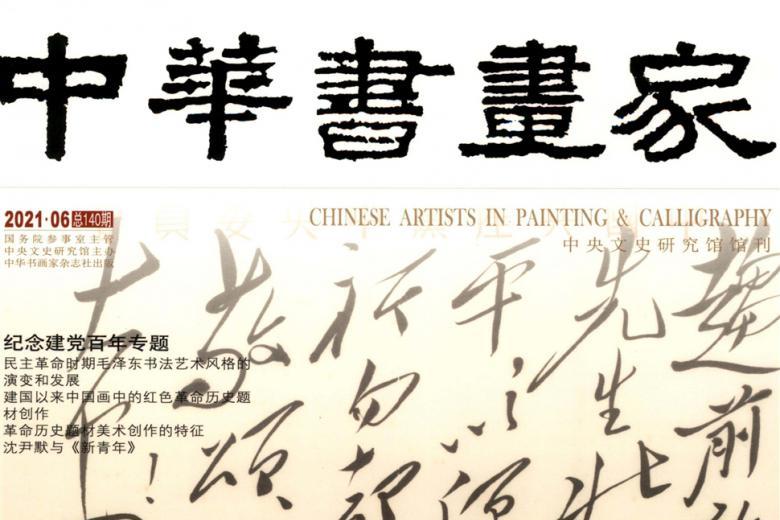 中華書畫家
2021·06 总140期
国务院参事室主管
中央文史研究馆主办
中华书画家杂志社出版
CHINESE ARTISTS IN PAINTING & CALLIGRAPHY
中央文史研究馆馆刊
纪念建党百年专题
民主革命时期毛泽东书法艺术风格的
演变和发展
建国以来中国画中的红色革命历史题
材创作
革命历史题材美术创作的特征
沈尹默与《新青年》
先生
平
祈勿却
敬颂